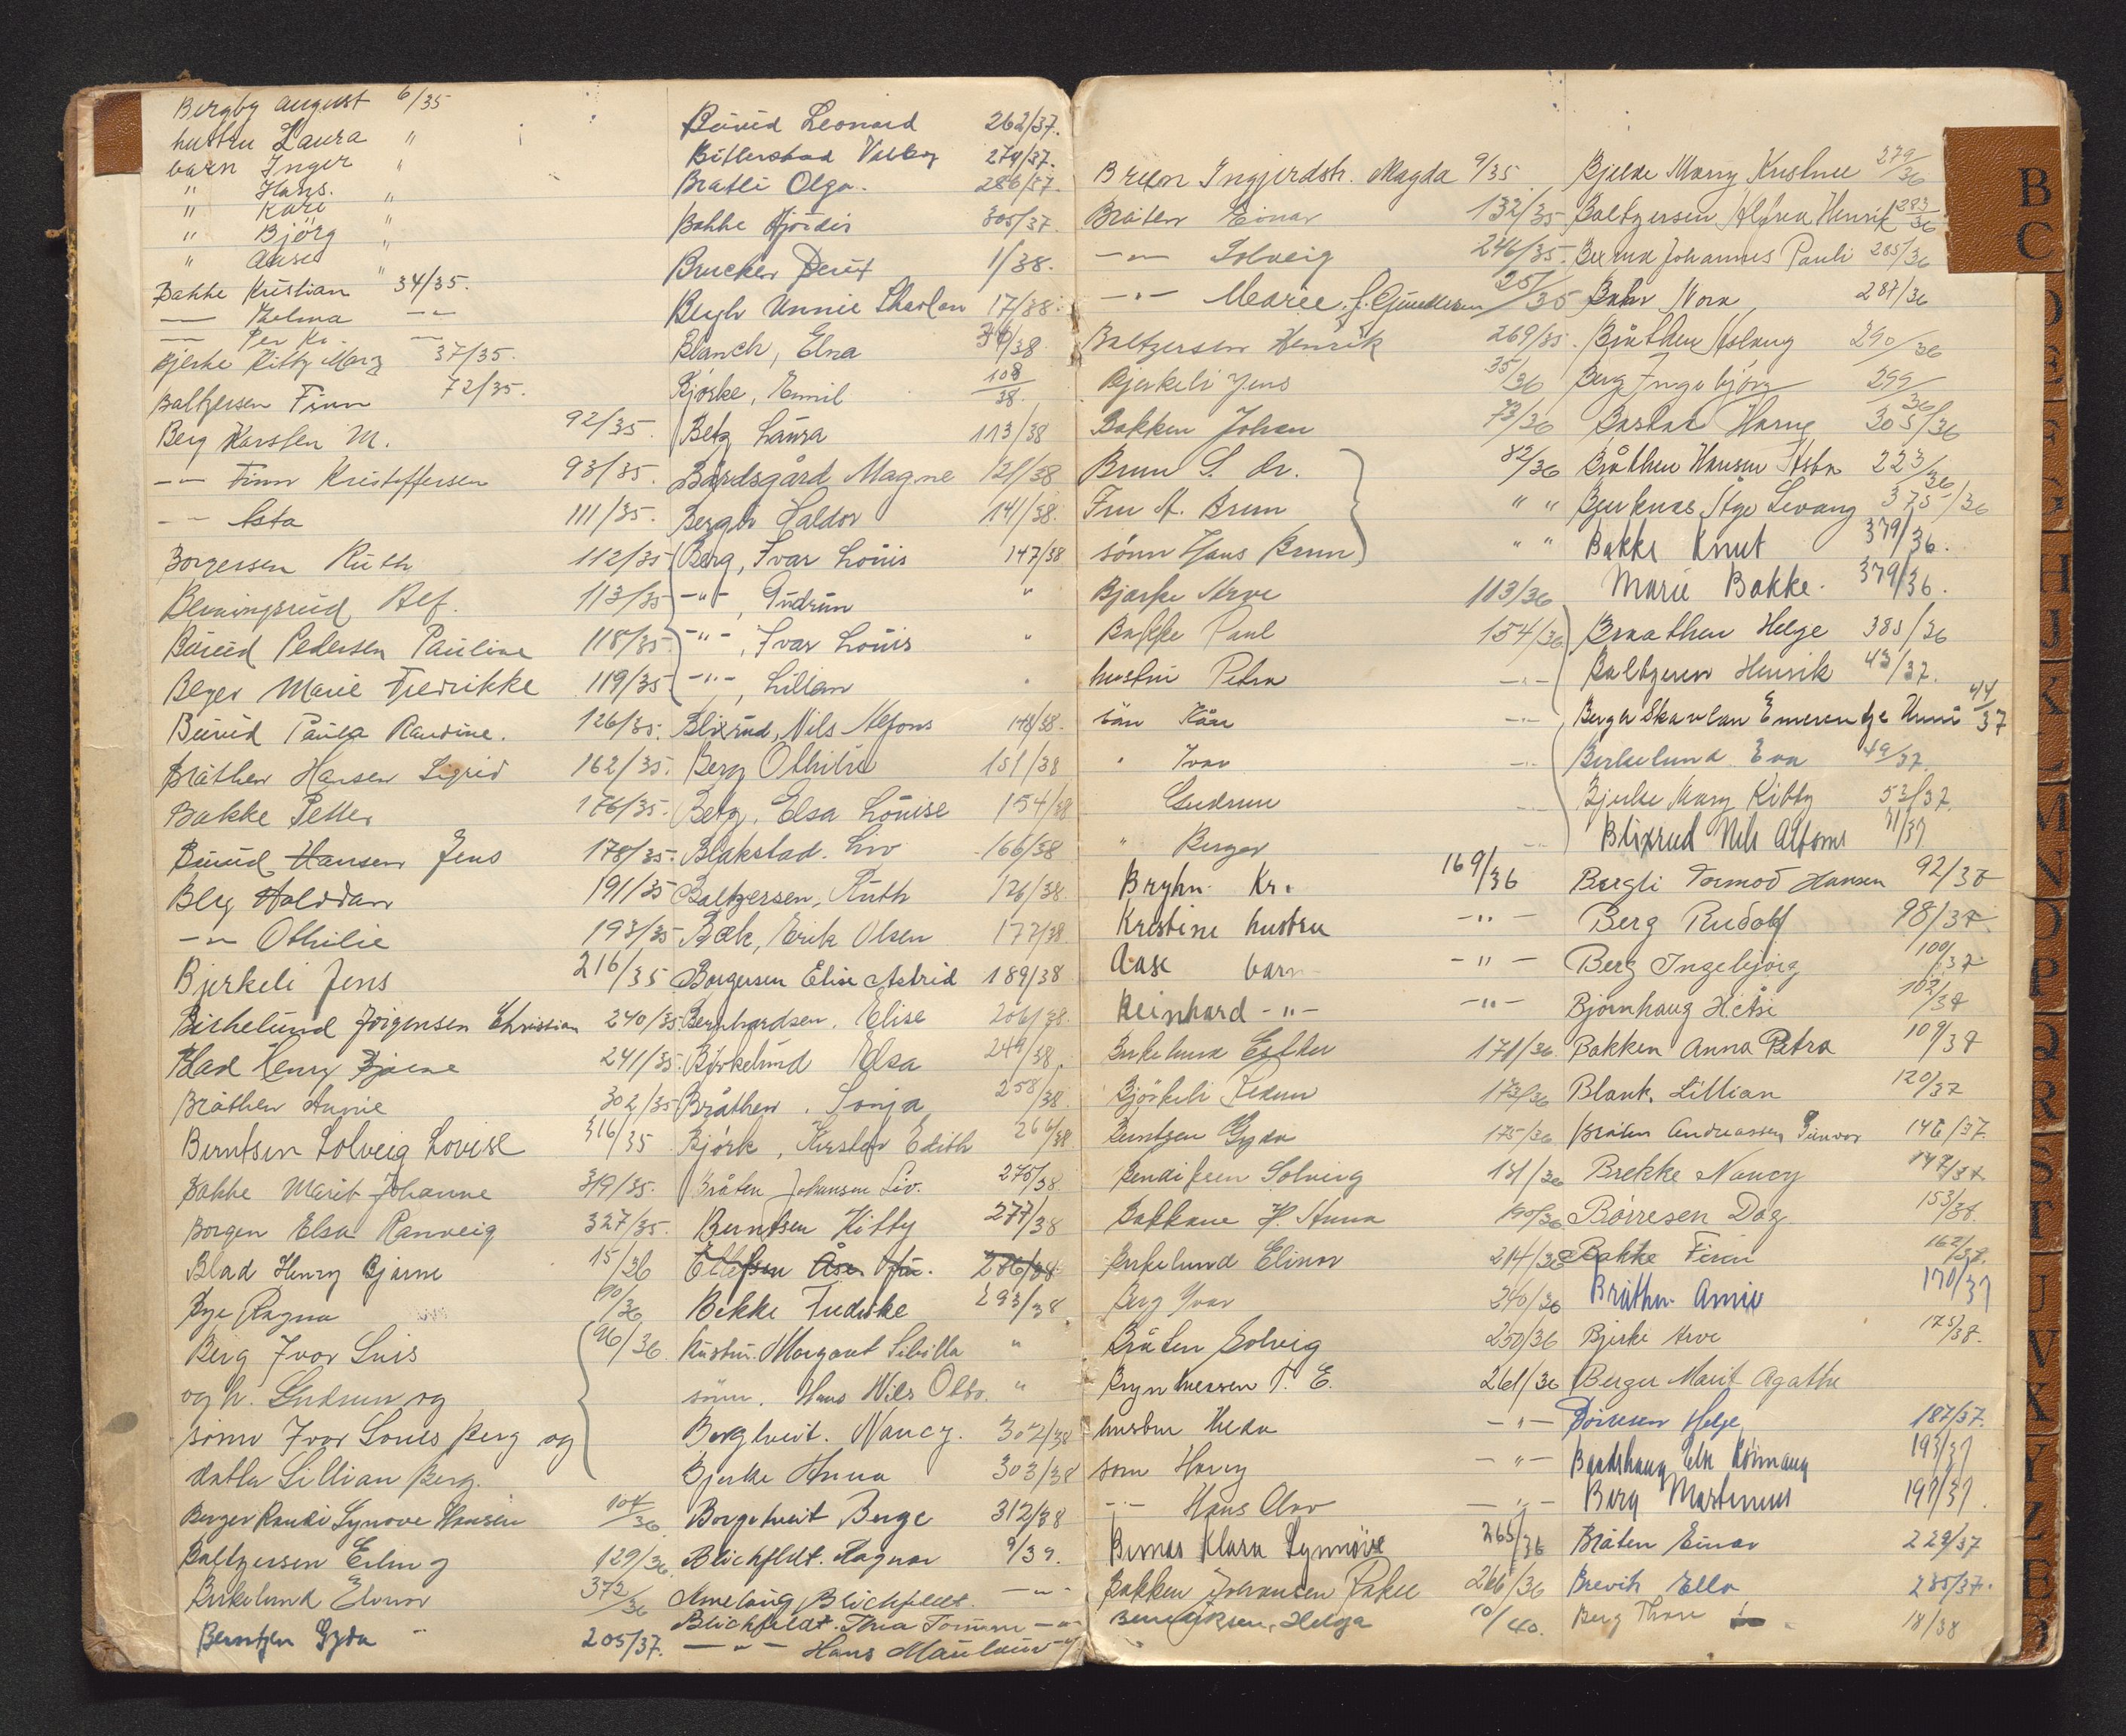 Bergby August 6/35
hustru Laura "
barn Inger "
" Hans.
" Kåre "
" Björg "
" Åase "
Bakke Kristian 34/35.
— Thelma — " —
— Per Kr. —
Bjerke Kitty Mary 37/35.
Baltzersen Finn 72/35.
Berg Karsten M. 92/35.
— " — Finn Kristoffersen 93/35.
— " — Asta 111/35.
Borgersen Ruth 112/35
Benningsrud Alf. 113/35
Buerud Pedersen Pauline 118/35
Beger Marie Fredrikke 119/35
Buerud Paula Raudine. 126/35.
Bråthen Hansen Sigrid 162/35.
Bakke Petter 176/35.
Buud Hansen Jens 178/35.
Berg Halvdan 191/35
— " — Othilie 193/35
Bjerkeli Jens 216/35
Birkelund Jörgensen Christian 240/35.
Blad Henry Bjarne 241/35.
Bråthen Annie 302/35
Berntsen Solveig Lovise 316/35
Bakke Marit Johanne 319/35.
Borgen Elsa Ranveig 327/35.
Blad Henry Bjarne 15/36
Bye Ragna 90/36
Berg Ivar Luis 96/36
og h. Gudrun og
sönn Ivar Louis Berg og
datter Lillian Berg.
Berger Randi Synove Hansen 104/36
Baltzersen Erling 129/36
Birkelund Elinor 372/36
Berntzen Gyda 205/37.
Buerud Leonard 262/37.
Bitterstad Valborg 279/37.
Bratli Olga. 286/37.
Bakke Hjördis 305/37.
Brucker Berit 1/38.
Bergh Unnie Skavlan 17/38.
Blanch, Elna 36/38
Bjórke, Emil 108/38.
Berg Laura 113/38
Bårdsgård Magne 121/38
Bergli Haldor 141/38.
Berg, Ivar Louis 147/38
— " —, Gudrun "
— " —, Ivar Louis "
— " —, Lillian "
Blixrud, Nils Alfons 148/38.
Berg Othilie 151/38
Berg, Elsa Louise 154/38
Blakstad. Liv 166/38
Baltzersen, Ruth 176/38.
Bæk, Erik Olsen 177/38.
Borgersen Elise Astrid 189/38
Bernhardsen. Elise 206/38.
Birkelund Elsa 249/38.
Bråthen. Sonja 258/38.
Bjórk, Kirsten Edith 266/38
Bråten Johansen Liv. 275/38.
Berntsen Kitty 277/38
Ellefsen Åse 286/38
Bekke Fredrikke 293/38
hustru. Margaret Sibilla "
sönn. Hans Nils Otto. "
Borgtveit. Nancy. 302/38
Bjerke Anna 303/38
Borgetveit Berge 312/38
Blichfeldt. Ragnar 9/39.
Annelaug Blichfeldt. — " —
Blichfeldt. Thea Tomine — " —
— " — Hans Mauland — " —
Bruun Ingjerdstr. Magda 9/35
Bråten Einar 132/35
— " — Solveig 246/35.
— " — Marie. f. Gundersen 251/35
Baltzersen Henrik 269/35.
Bjerkeli Jens 35/36
Bakken Johan 73/36
Brun S. dr. 82/36
Fru A. Brun " "
sönn Hans Brun " "
Bjerke Arve 113/36
Bakke Paul 154/36
hustru Petra — " —
sönn Kåre — " —
" Ivar — " —
Gudrun — " —
" Berger — " —
Bryhn. Kr. 169/36
Kristine hustru — " —
Aase barn — " —
Reinhard — " — — " —
Birkelund Esther 171/36.
Bjórkeli Jedun 172/36
Berntzen Gyda 175/36
Bendiksen Solveig 181/36
Bakkane H. Anna 190/36
Birkelund Elinor 214/36
Berg Ivar 240/36
Bråten Solveig 250/36
Brynthessen T. E. 261/36
hustru Hedv — " —
sönn Harry — " —
— " — Hans Olav — " —
Bernås Klara Synnöve 265/36
Bakken Johansen Rakel 266/36
Bendiksen, Helga 10/40.
Bjelke Marry Kristine 279/36
Baltzersen Alfred Henrik 283/36
Bexrud Johannes Pauli 285/36
Bahr Nora 287/36
Bråthen Aslaug 290/36
Berg Ingebjörg 299/36
Bastad Harry 305/36
Bråthen Hansen Asta 223/36
Bjerknes Åge Levang 375/36
Bakke Knut 379/36.
Marie Bakke. 379/36.
Braathen Helge 385/36
Baltzersen Henrik 43/37.
Bergh Skavlan Emerentze Unni 44/37
Birkelund Eva 49/37.
Bjerke Mary Kitty 53/37.
Blixrud Nils Alfons 71/37
Bergli Tormod Hansen 92/37
Berg Rudolf 98/37.
Berg Ingebjörg 100/37
Björnhaug Helsi 102/37
Bakken Anna Petra 109/37
Blank. Lillian 120/37
Bråten Andreassen Gunvor 146/37.
Brekke Nancy 147/37.
Börresen Dag 153/37.
Bakke Finn 162/37.
Bråthen Annie 170/37
Bjerke Arve 175/37.
Berger Marit Agathe
Börresen Helge 187/37.
Baardshaug Else Rönnaug 193/37
Berg Martinius 197/37.
Bråten Einar 229/37
Brevik Ella 235/37.
Berg Thore 18/38
B
C
D
E
F
G
H
J
K
L
M
N
O
P
Q
R
S
T
U
V
X
Y
Z
Æ
Ö